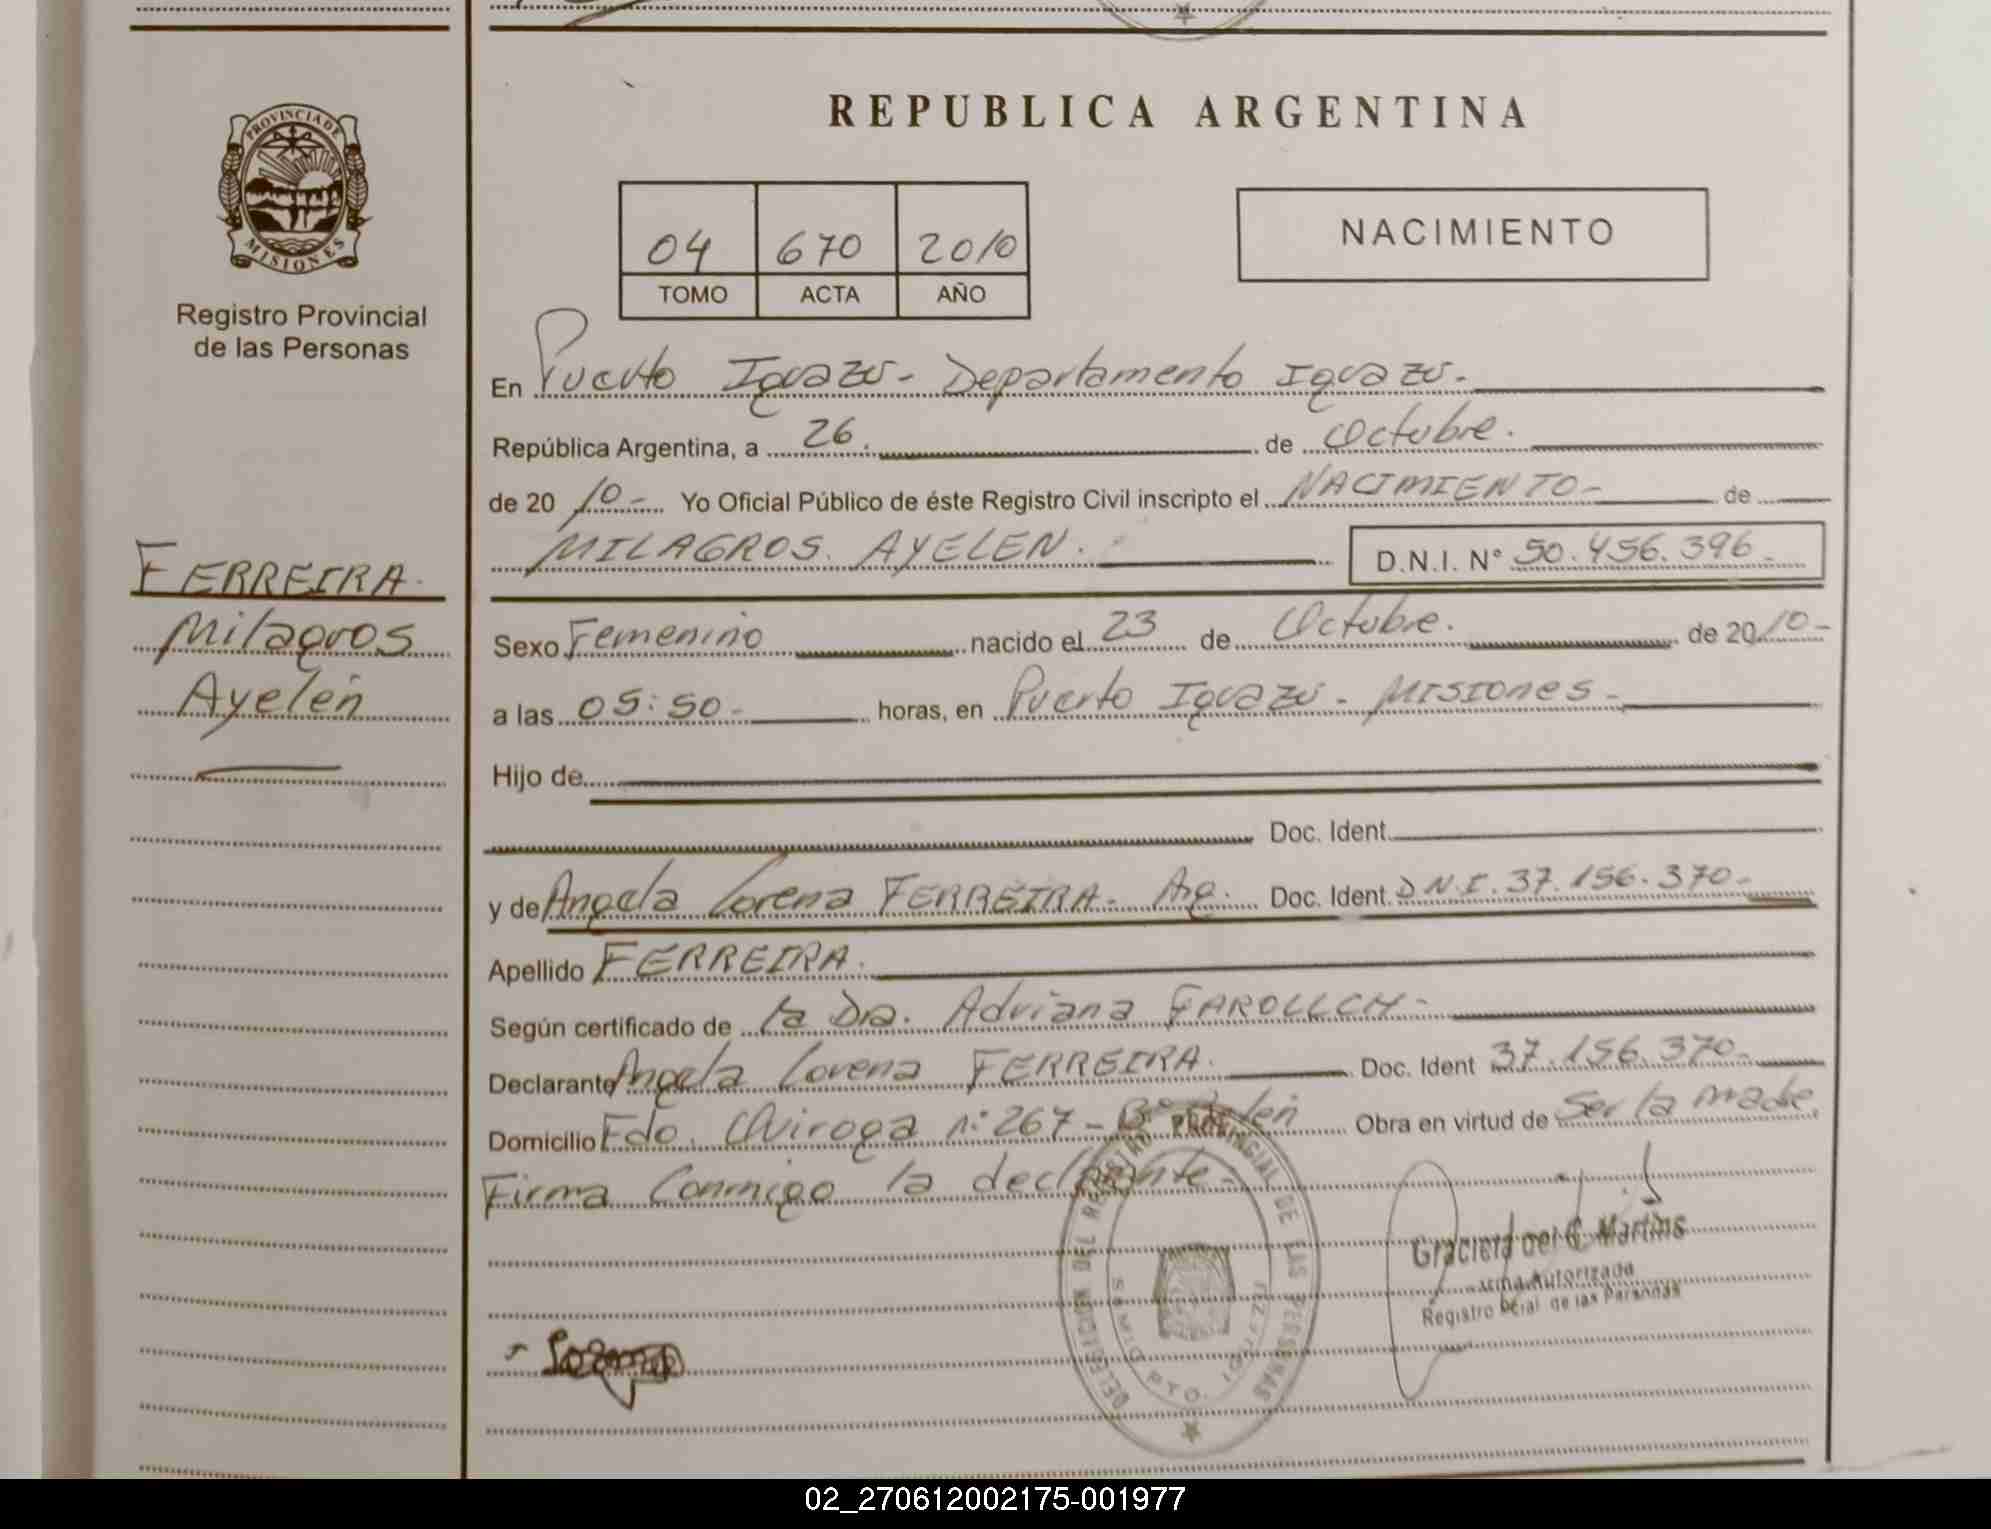 REPUBLICA ARGENTINA
PROVINCIA DE MISIONES
Registro Provincial
de las Personas
04 670 2010
TOMO ACTA AÑO
NACIMIENTO
En Puerto Iguazú - Departamento Iguazú.-
República Argentina, a 26. de Octubre.
de 20 10- Yo Oficial Público de éste Registro Civil inscripto el NACIMIENTO- de
MILAGROS. AYELEN. D.N.I. N° 50.456.396-
FERREIRA.
Milagros
Ayelén
Sexo Femenino nacido el 23 de Octubre. de 20 10-
a las 05:50- horas, en Puerto Iguazú - Misiones-
Hijo de
Doc. Ident.
y de Angela Lorena FERREIRA- Arg. Doc. Ident. D.N.I. 37.156.370-
Apellido FERREIRA.
Según certificado de la Dra. Adriana
Declarante Angela Lorena FERREIRA. Doc. Ident 37.156.370-
Domicilio Fdo. Quiroga n° 267 - B° Obra en virtud de Ser la madre
Firma Conmigo la declarante-
DELEGACION DEL REGISTRO PROVINCIAL DE LAS PERSONAS
PTO. IGUAZU
Graciela del C. Martins
Firma Autorizada
Registro Pcial. de las Personas
02_270612002175-001977